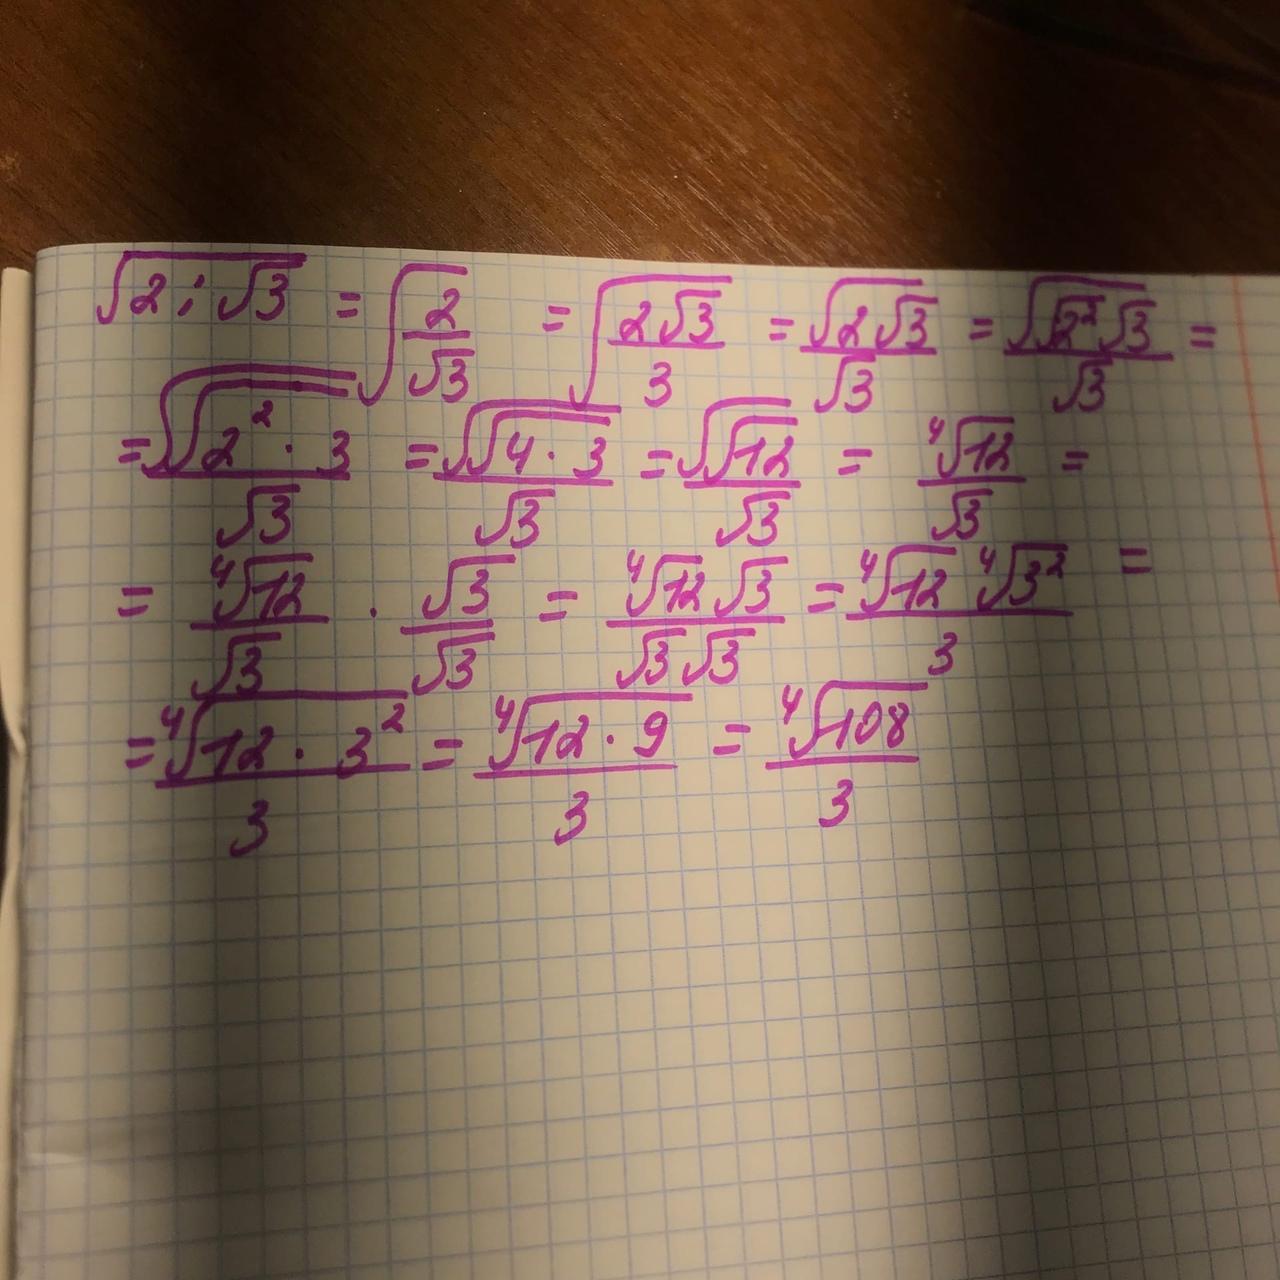 √(2 : √3) = √(2/√3) = √(2√3/3) = √(2√3)/√3 = √(√2²√3)/√3 =
= √√(2² · 3)/√3 = √√(4 · 3)/√3 = √√12/√3 = ⁴√12/√3 =
= ⁴√12/√3 · √3/√3 = ⁴√12√3/√3√3 = ⁴√12 ⁴√3²/3 =
= ⁴√(12 · 3²)/3 = ⁴√(12 · 9)/3 = ⁴√108/3